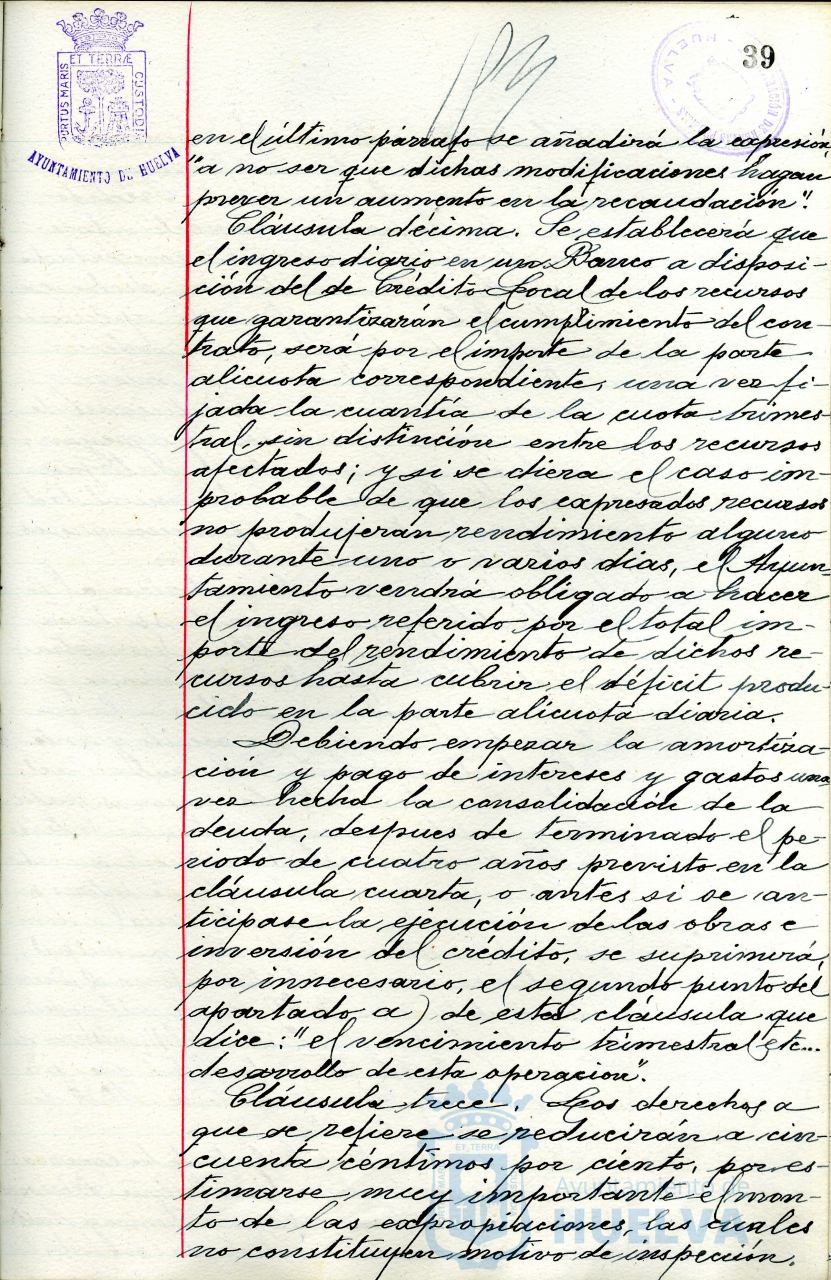 39
PORTUS MARIS ET TERRÆ CUSTODIA
AYUNTAMIENTO DE HUELVA
HUELVA
en el último párrafo se añadirá la expresión,
"a no ser que dichas modificaciones hagan
prever un aumento en la recaudación".
Cláusula décima. Se establecerá que
el ingreso diario en un Banco a disposi-
ción del de Crédito Local de los recursos
que garantizarán el cumplimiento del con-
trato, será por el importe de la parte
alicuota correspondiente, una vez fi-
jada la cuantía de la cuota trimes-
tral, sin distinción entre los recursos
afectados; y si se diera el caso im-
probable de que los expresados recursos
no produjeran rendimiento alguno
durante uno o varios dias, el Ayun-
tamiento vendrá obligado a hacer
el ingreso referido por el total im-
porte del rendimiento de dichos re-
cursos hasta cubrir el déficit produ-
cido en la parte alicuota diaria.
Debiendo empezar la amortiza-
ción y pago de intereses y gastos una
vez hecha la consolidación de la
deuda, despues de terminado el pe-
riodo de cuatro años previsto en la
cláusula cuarta, o antes si se an-
ticipase la ejecución de las obras e
inversión del crédito, se suprimirá,
por innecesario, el segundo punto del
apartado a) de esta cláusula que
dice: "el vencimiento trimestral etc...
desarrollo de esta operacion".
Cláusula trece. Los derechos a
que se refiere se reducirán a cin-
cuenta céntimos por ciento, por es-
timarse muy importante el mon-
to de las expropiaciones, las cuales
no constituyen motivo de inspección.
Ayuntamiento de
HUELVA